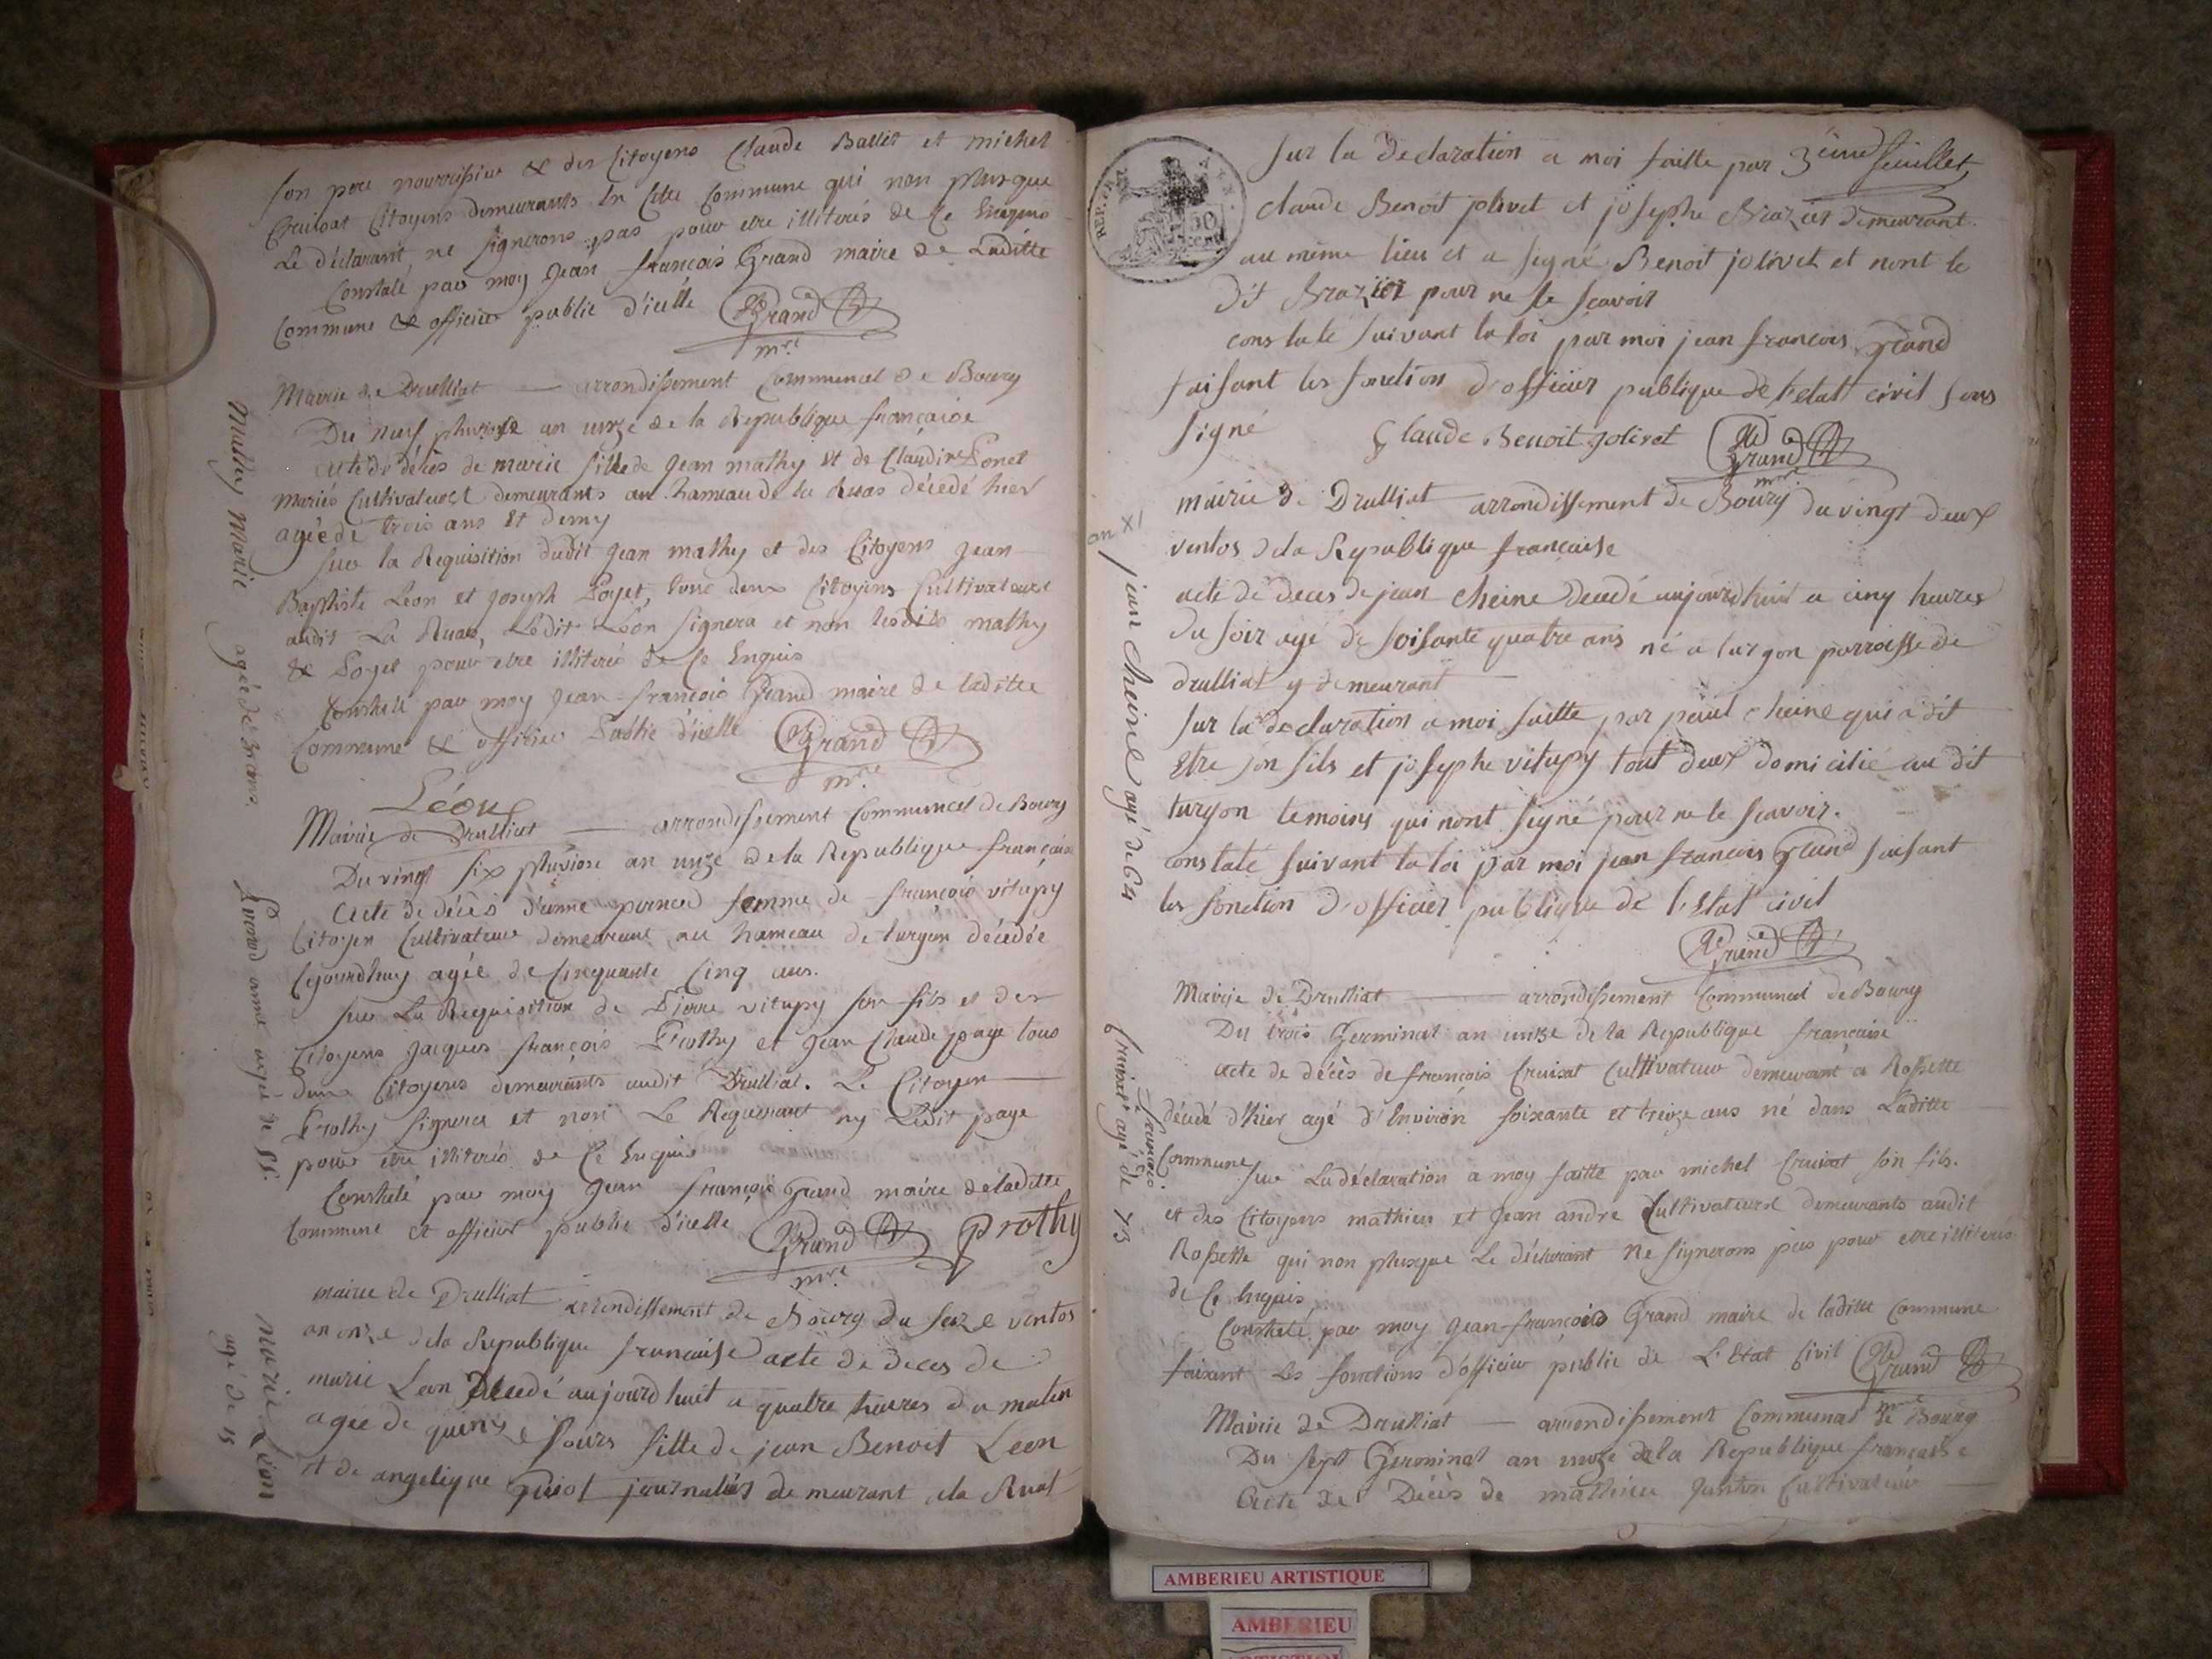 son pere nourrisier & des Citoyens Claude Ballet et michel
Cruisat Citoyens demeurants En Cette Commune qui non plus que
Le déclarant ne signerons pas pour etre illiterés de ce Enquis
Constaté par moy Jean françois Grand maire de Laditte
Commune & officier public d'icelle Grand
mre
Mairie de Drulliat — arrondissement Communal de Bourg
Du neuf pluviose an unze de la Republique française
acte de décès de marie fille de Jean mathy et de Claudine
mariés Cultivateurs demeurants au hameau de la Ruas décédé hier
agée de trois ans Et demy
sur la Requisition dudit Jean mathy et des Citoyens Jean
Baptiste Léon et Joseph Poyet, tous deux Citoyens Cultivateurs
audit La Ruas, Ledit Léon signera et non lesdits mathy
& Poyet pour etre illiteré de ce Enquis
Constaté par moy Jean-françois Grand maire de laditte
Commune & officier Public d'icelle Grand
mre
Léon
Mathy Marie agée de 3 ans
Mairie de Drulliat — arrondissement Communal de Bourg
Du vingt six pluviose an unze de la Republique française
Acte de décès d'anne femme de françois vitupy
Citoyen Cultivateur demeurant au hameau de turgon décédée
Cejourdhuy agée de Cinquante Cinq ans.
sur La Requisition de Pierre vitupy son fils et des
Citoyens Jacques françois Prothy et Jean Claude page tous
deux Citoyens demeurants audit Drulliat. Le Citoyen
Prothy signera et non Le Requerant ny Ledit page
pour etre illiterés de Ce Enquis
Constaté par moy Jean françois Grand maire de laditte
Commune et officier public d'icelle Grand Prothy
mre
anne agée de 55.
mairie de Drulliat arrondissement de Bourg du seize ventos
an onze dela Republique francaise acte de deces de
marie Leon decedé aujourd huit a quatre heures du matin
agée de quinse jours fille de jean Benoit Leon
et de angelique journaliés demeurant ala Ruat
marie Léon
agé de 15
sur la Declaration a moi faitte par 3eime feuillet
REP. FRA.
50
claude Benoit jolivet et josephe Brazier demeurant
au même lieu et a signé Benoit jolivet et nont le
dit Brazier pour ne le scavoir
constaté suivant la loi par moi jean francois grand
faisant les fonction d'officier publique de l'etat civil sous
signé Claude Benoit jolivet Grand
mre
mairie de Drulliat arrondissement de Bourg du vingt deux
ventos dela Republique francaise
an XI
acte de deces de jean cheine decedé aujourdhuit a cinq heures
du soir agé de soisante quatre ans né a turgon parroisse de
drulliat y demeurant
sur la declaration a moi faitte par paul cheine qui a dit
Etre son fils et josephe vitupy tout deux domicilié au dit
turgon temoins qui nont signé pour ne le scavoir.
constaté suivant la loi par moi jean francois grand faisant
les fonction d'officier publique de l'Etat civil
Grand
jean cheine agé de 64
Mairie de Drulliat — arrondissement Communal de Bourg
Du trois Germinal an unze de la Republique française
acte de décès de françois Cruisat Cultivateur demeurant a Rossette
décédé d'hier agé d'Environ soixante et treize ans né dans Laditte
Commune sur La déclaration a moy faitte par michel Cruisat son fils.
et des Citoyens mathieu et Jean andré Cultivateurs demeurants audit
Rossette qui non plusque Le déclarant ne signerons pas pour etre illiterés
de Ce Enquis
Constaté par moy Jean-françois Grand maire de laditte Commune
faisant les fonctions d'officier public de L'Etat Civil Grand
mre
françois
Cruisat agé de 73
Mairie de Drulliat — arrondissement Communal de Bourg
Du sept Germinal an unze dela Republique française
Acte de Décès de mathieu Cultivateur
AMBERIEU ARTISTIQUE
AMBERIEU
ARTISTIQUE